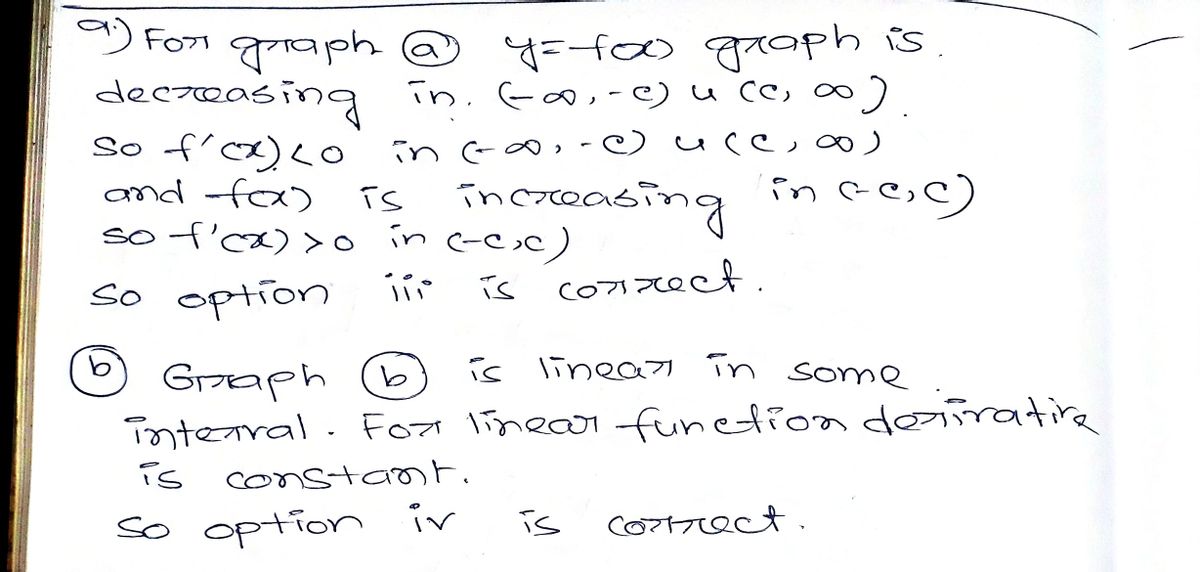 a.) For graph (a) y=f(x) graph is
decreasing in (-∞,-c) u (c, ∞)
so f'(x)<0 in (-∞,-c) u (c, ∞)
and f(x) is increasing in (-c,c)
so f'(x)>0 in (-c,c)
so option iii is correct.
(b) Graph (b) is linear in some
interval. For linear function derivative
is constant.
so option iv is correct.